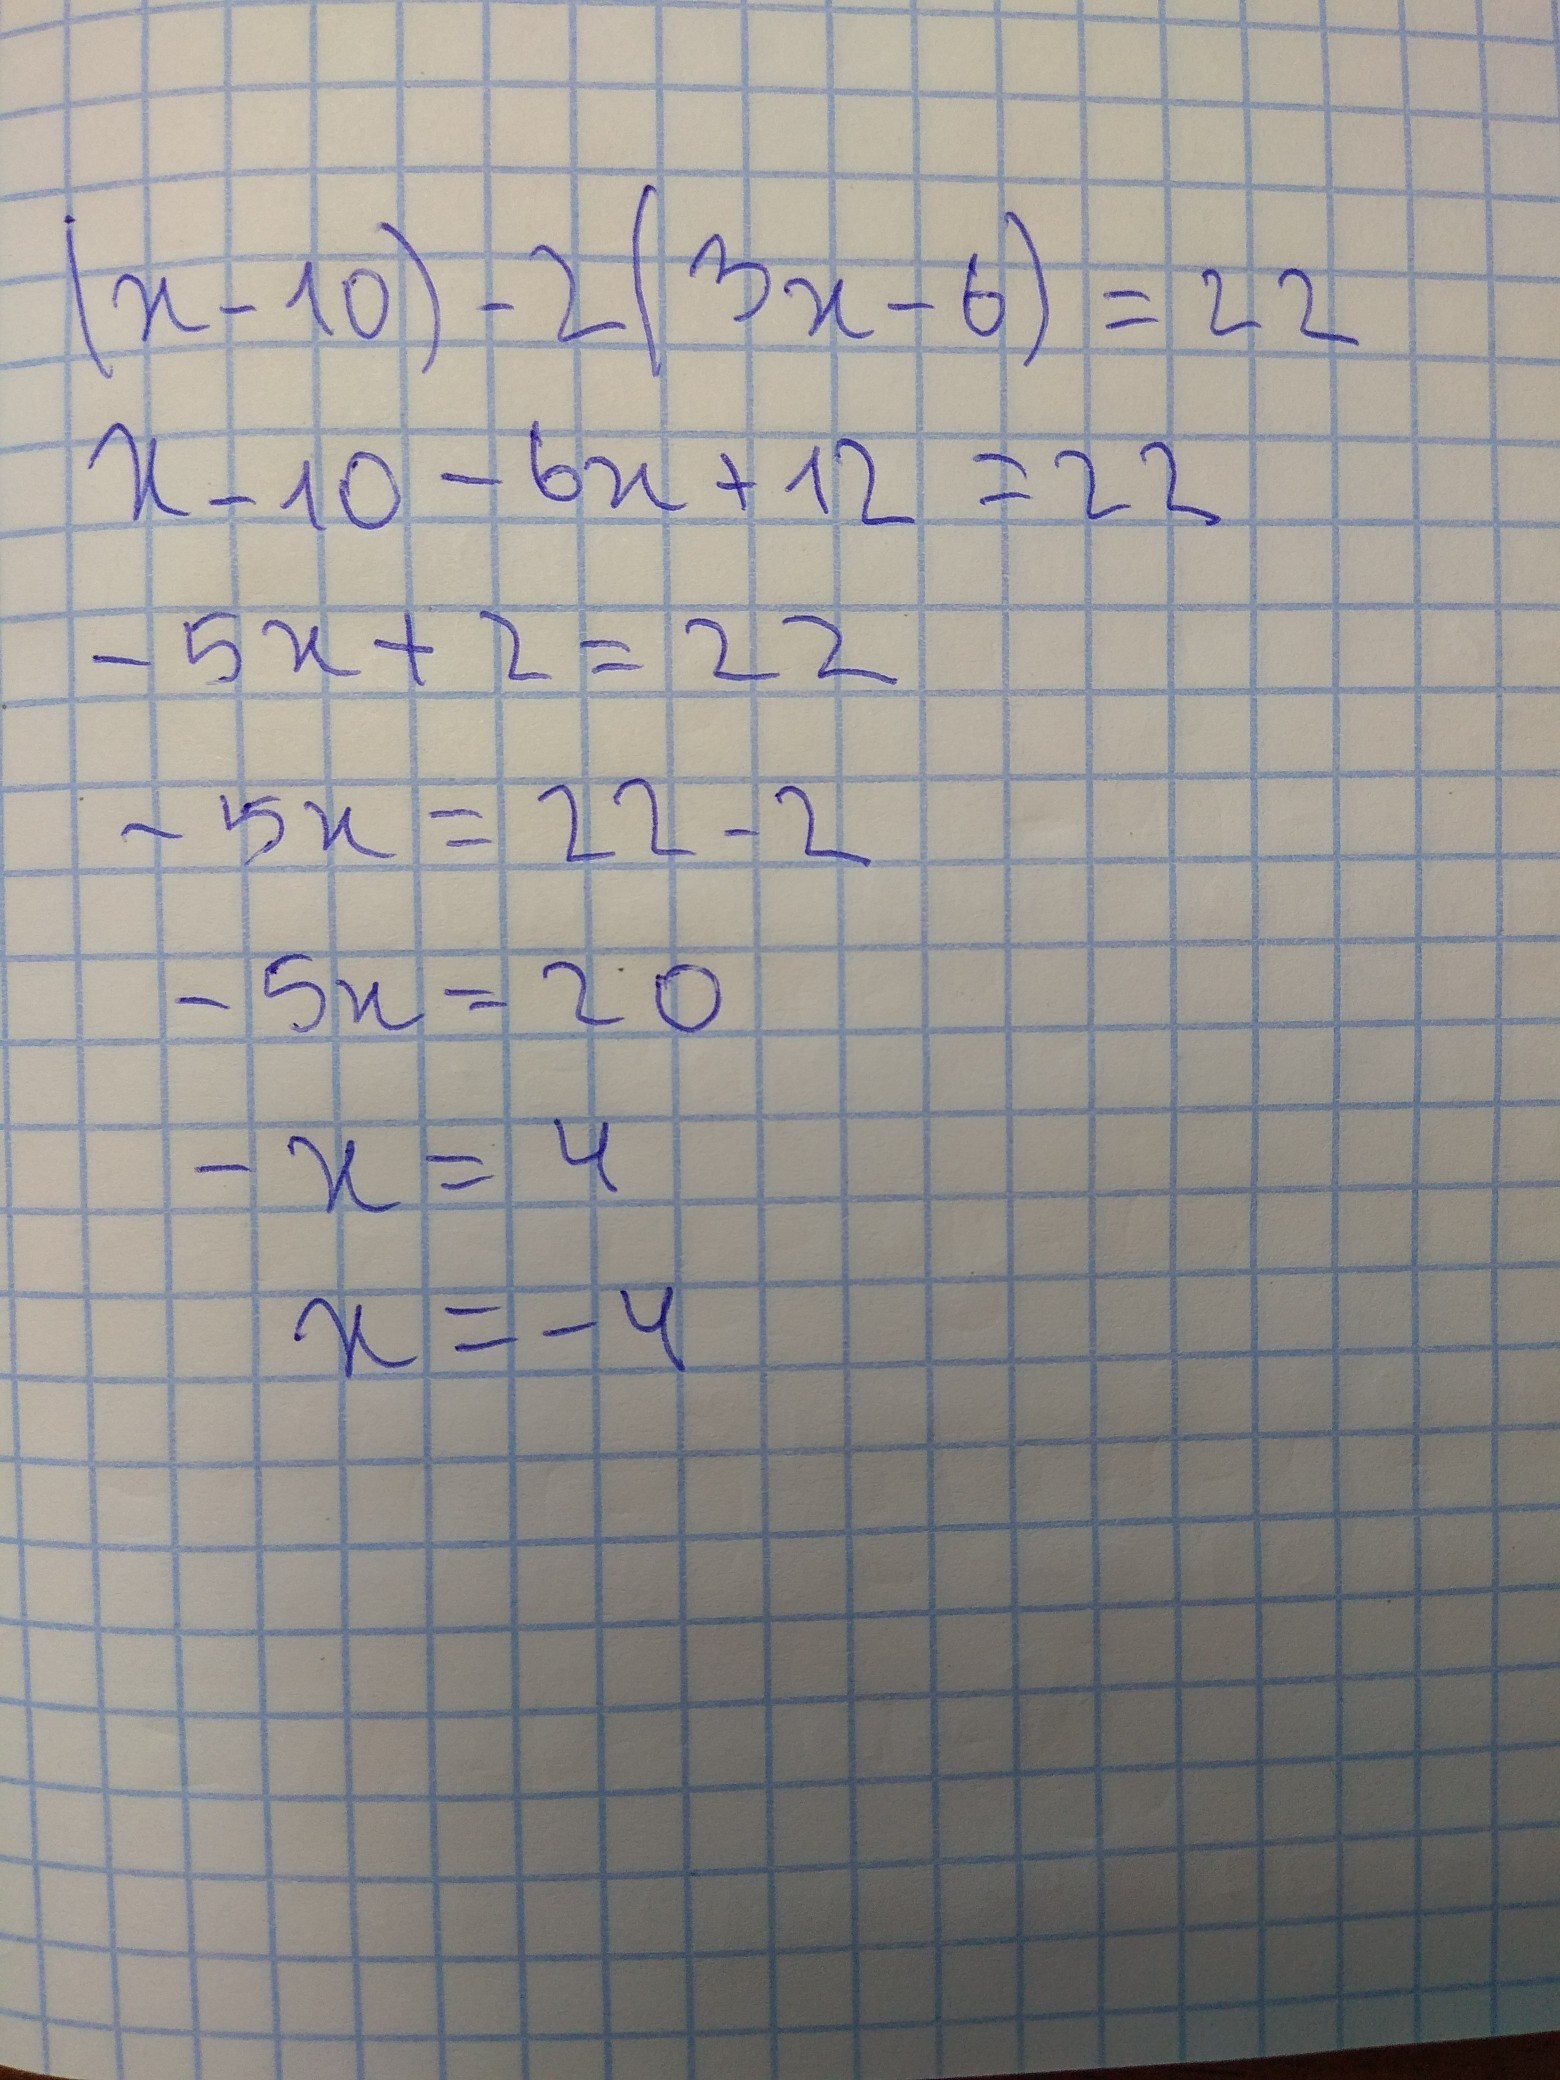 (x-10)-2(3x-6)=22
x-10-6x+12=22
-5x+2=22
-5x=22-2
-5x=20
-x=4
x=-4